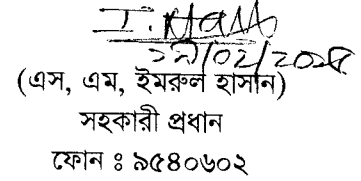 (এস, এম, ইমরুল হাসান)
সহকারী প্রধান
ফোন ঃ ৯৫৪০৬০২